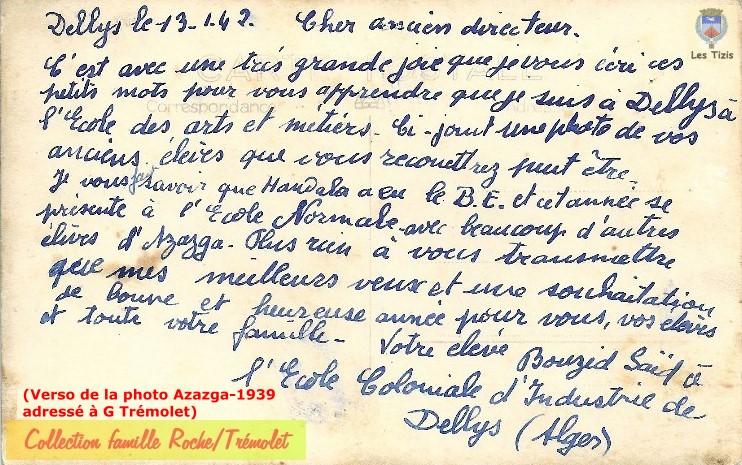 Dellys le 13.1.42. Cher ancien directeur.
Les Tizis
CARTE POSTALE
Correspondance
C'est avec une très grande joie que je vous écri ces
petits mots pour vous apprendre que je suis à Dellys à
l'Ecole des arts et métiers. Ci-joint une photo de vos
anciens élèves que vous reconettrez peut être.
Je vous fais savoir que Handala a eu le B.E. et cet année se
présente à l'Ecole Normale avec beaucoup d'autres
élèves d'Azazga. Plus rien à vous transmettre
que mes meilleurs veux et une souhaitation
de bonne et heureuse année pour vous, vos elèves
et toute votre famille. Votre elevé Bouzid Saïd à
l'Ecole Coloniale d'Industrie de
Dellys (Alger)
(Verso de la photo Azazga-1939
adressé à G Trémolet)
Collection famille Roche/Trémolet